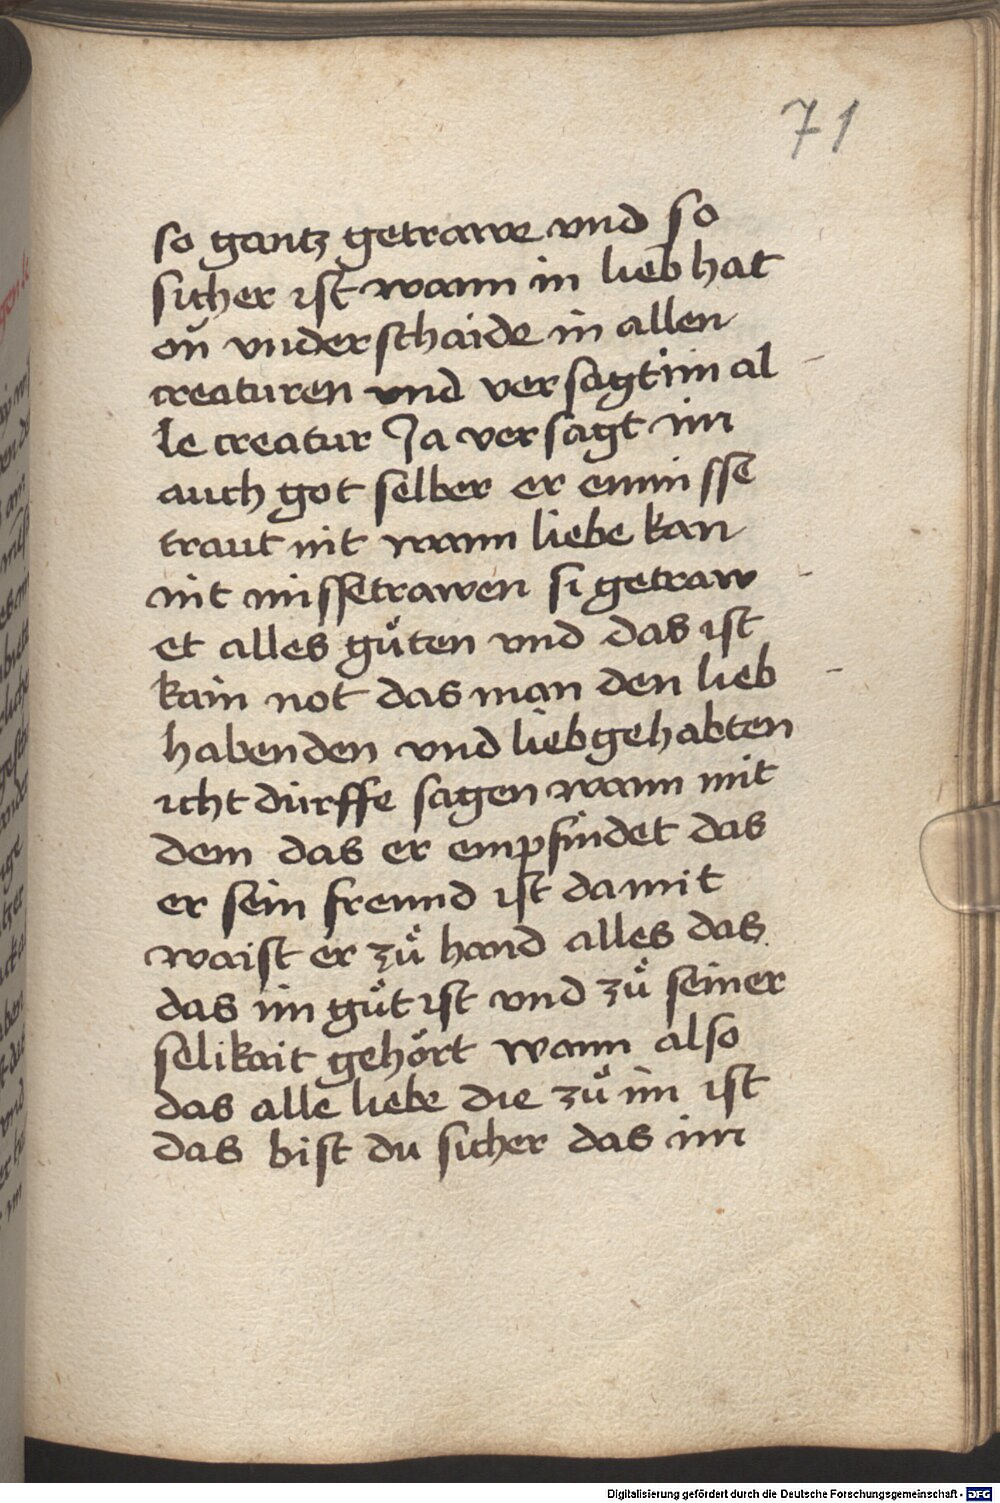 71
so gantz getrawe vnd so
sicher ist wann in lieb hat
on̄ vnderschaide in allen
creaturen vnd versagt im al
le creatur Ja versagt im
auch got selber er enmisse
traut nit wann liebe kan
nit missetrawen si getraw
et alles gůten vnd das ist
kain not das man den lieb
habenden vnd liebgehabten
icht dürffe sagen wann mit
dem das er empfindet das
er sein freund ist damit
waist er zů hand alles das
das im gůt ist vnd zů seiner
selikait gehört wann also
das alle liebe die zů im ist
das bist du sicher das im
Digitalisierung gefördert durch die Deutsche Forschungsgemeinschaft - DFG